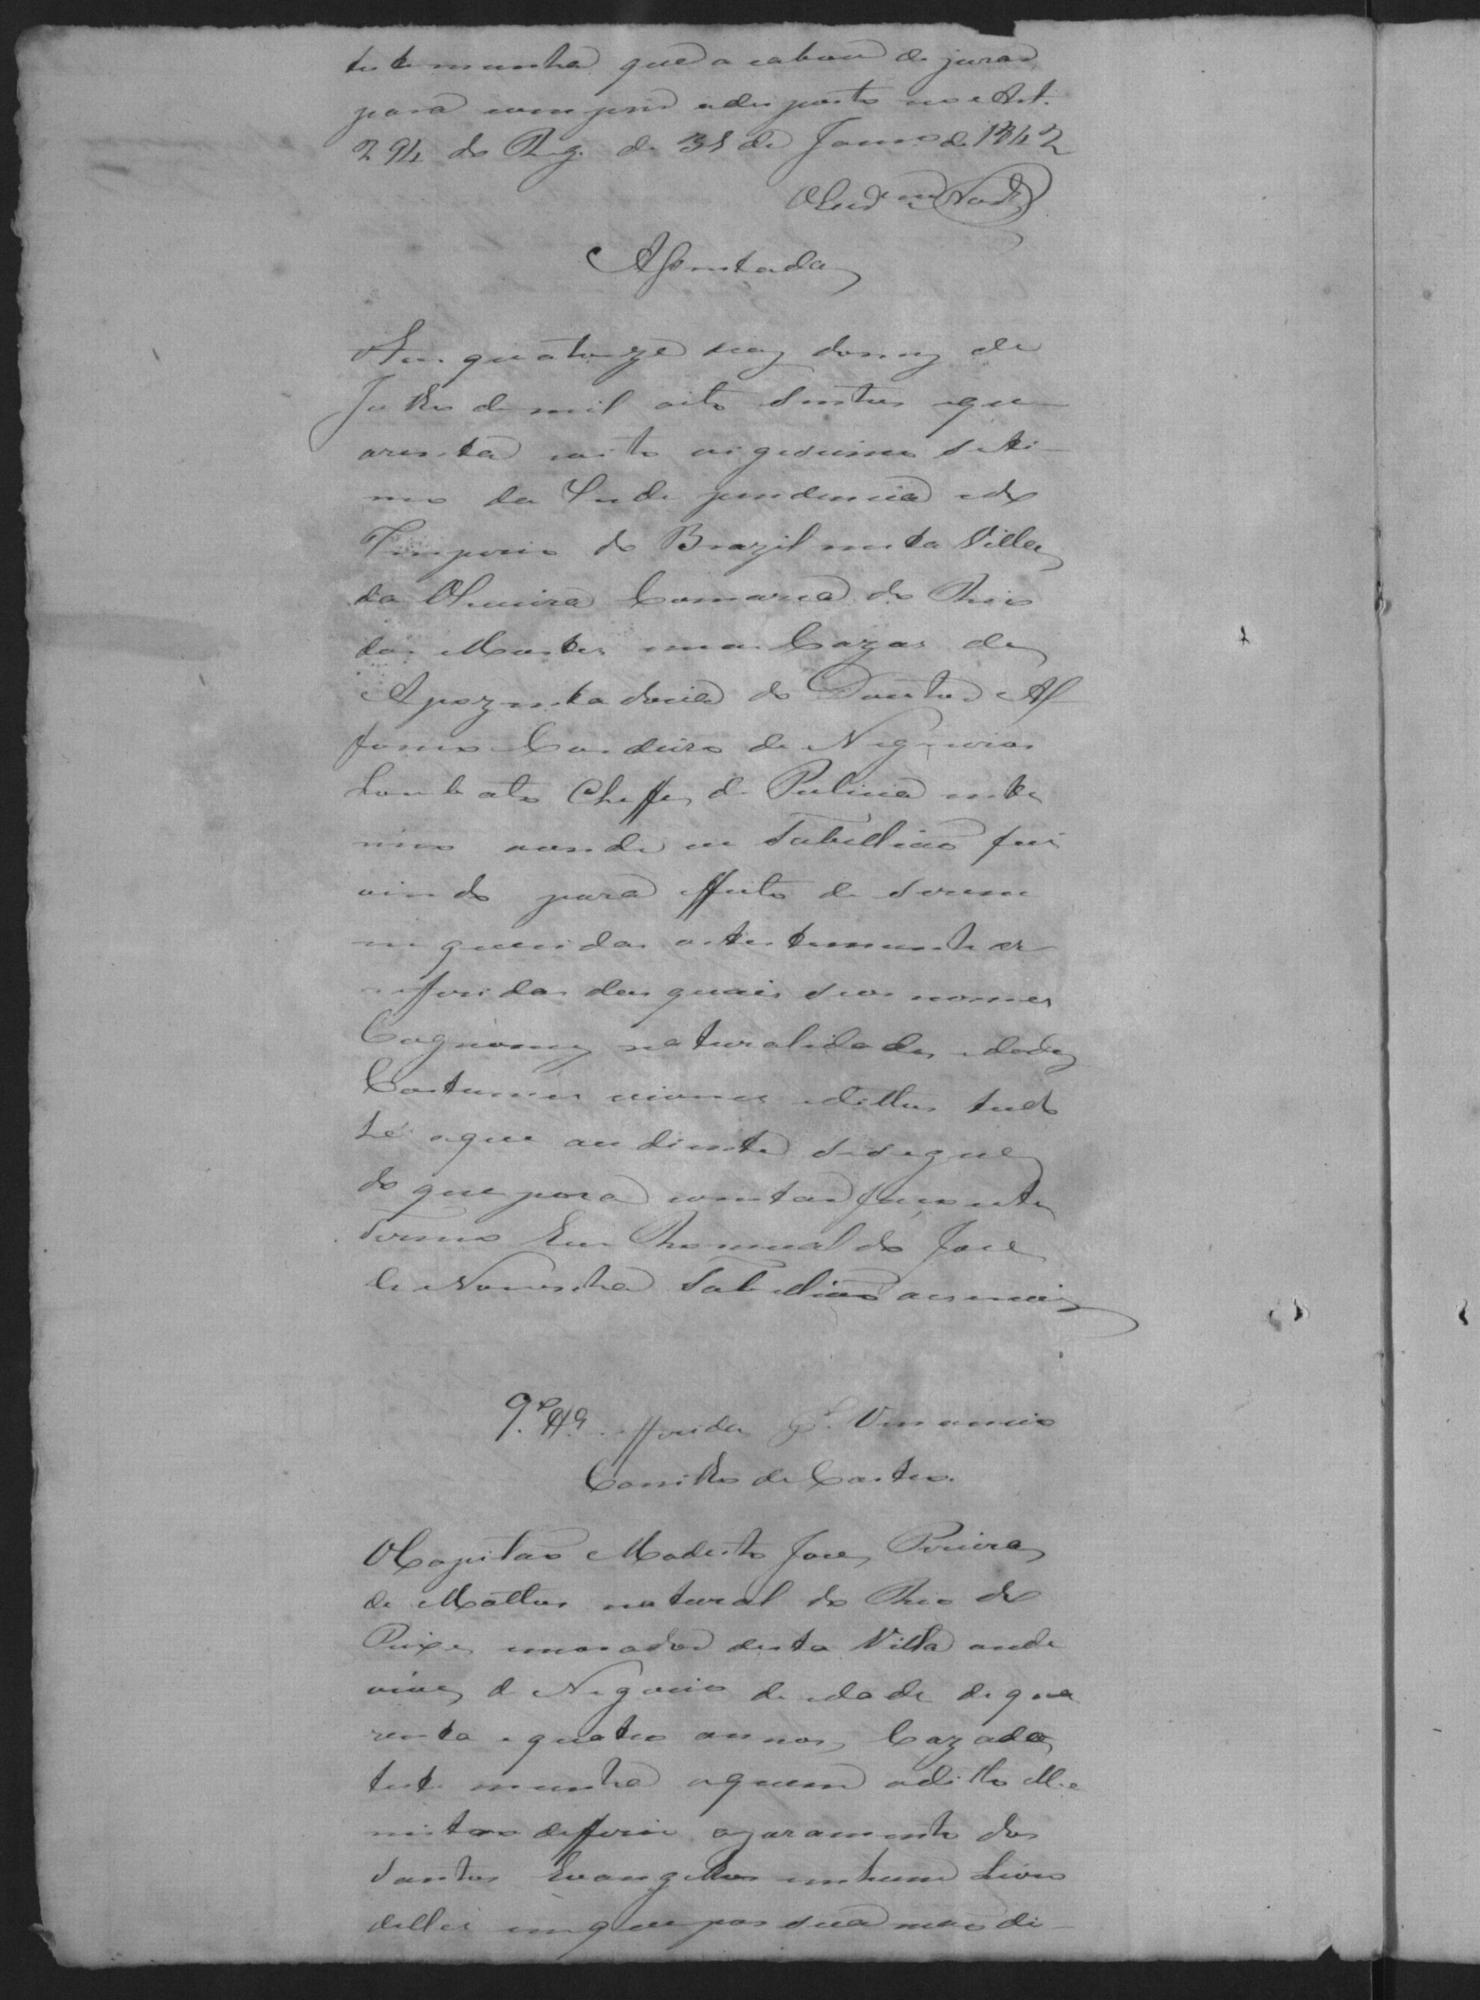 testemunha que acabou de jurar
para comprir odisposto no Art.
294 do Reg. de 31 de Janro de 1842
Assentada
Aos quatorze dias domez de
Julho de mil oito Centos equa-
arenta eoito vigecimo Seti-
mo da Inde pendencia edo
Imperio do Brazil nesta Villa
da Oliveira Comarca do Rio
das Mortes em as Cazas de
Apozentadoria do Doutor Af
fonso Cordeiro de Negreiros
Lonbato Cheffe de Pulicia inte
rino aonde eu Tabellião fui
vindo para effeito de serem
inqueridas astestemunhas
refferidas das quais seos nomes
Cognomes naturalidades idades
Costumes viveres edittos tudo
hé oque au diente sesegue
do que para constar faço este
Termo Eu Romualdo José
de Noronha Tabellião escrevi
9.ª Ta. refferida Venancio
Carrilho de Castro.
OCapitão Modesto José Pereira
de Mattos natural do Rio do
Peixe emorador desta Villa onde
vive de Negocio de idade de qua
renta equatro annos, Cazado,
testemunha aquem oditto Me
nistro defferio ojuramento dos
Santos Evangelhos emhum Livro
delles emque pos sua mão di-